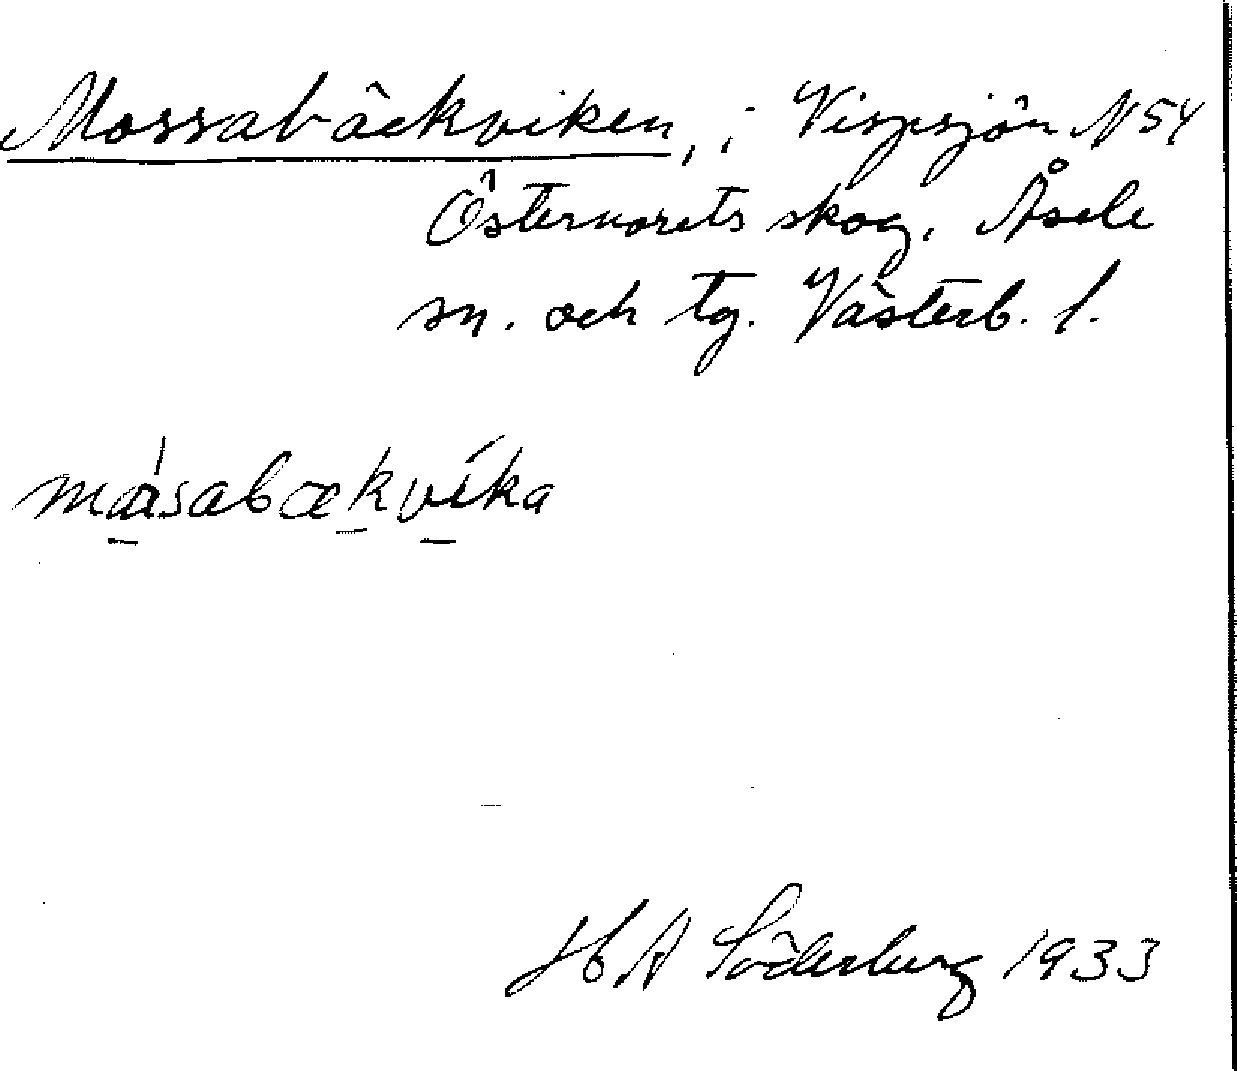 Mossabäckviken, i Vispsjön N 54
Östernorets skog, Åsele
sn. och tg. Västerb. l.
måsabækvika
H A Söderberg 1933